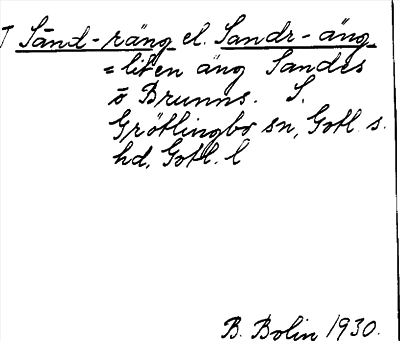 T Sānd-räng el. Sandr-äng
= liten äng Sandes
ö Brunns. S.
Grötlingbo sn, Gotl. s.
hd, Gotl. l
B. Bolin 1930.